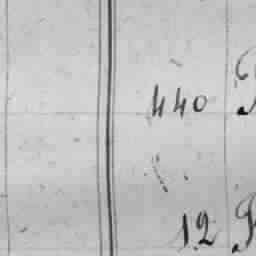 440
12